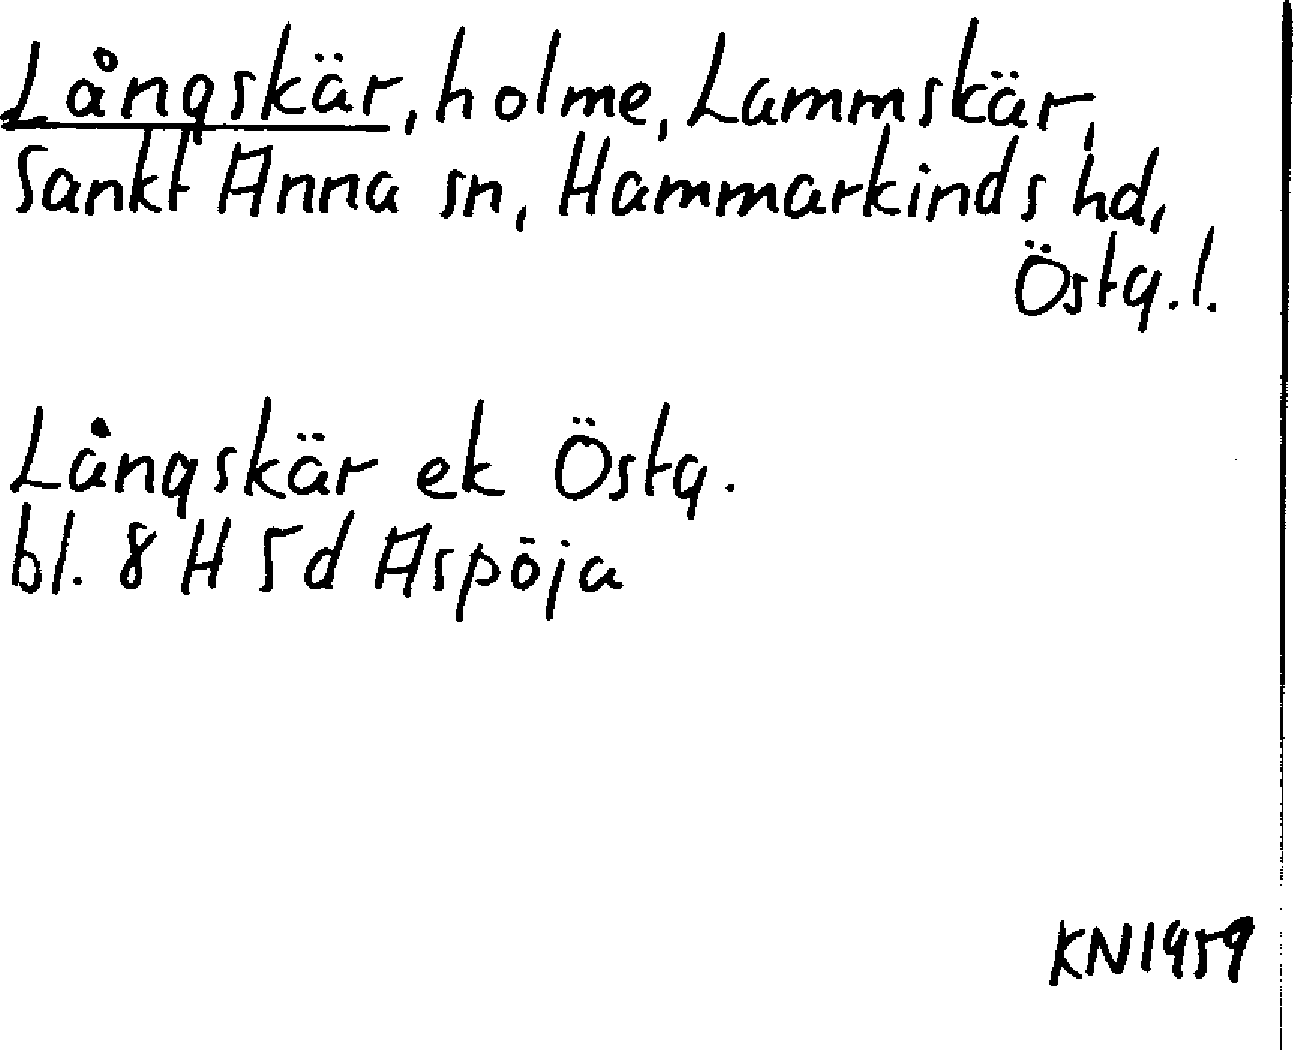 Långskär, holme, Lammskär,
Sankt Anna sn, Hammarkinds hd,
Östg. l.
Långskär ek Östg.
bl. 8 H 5d Aspöja
KN1959